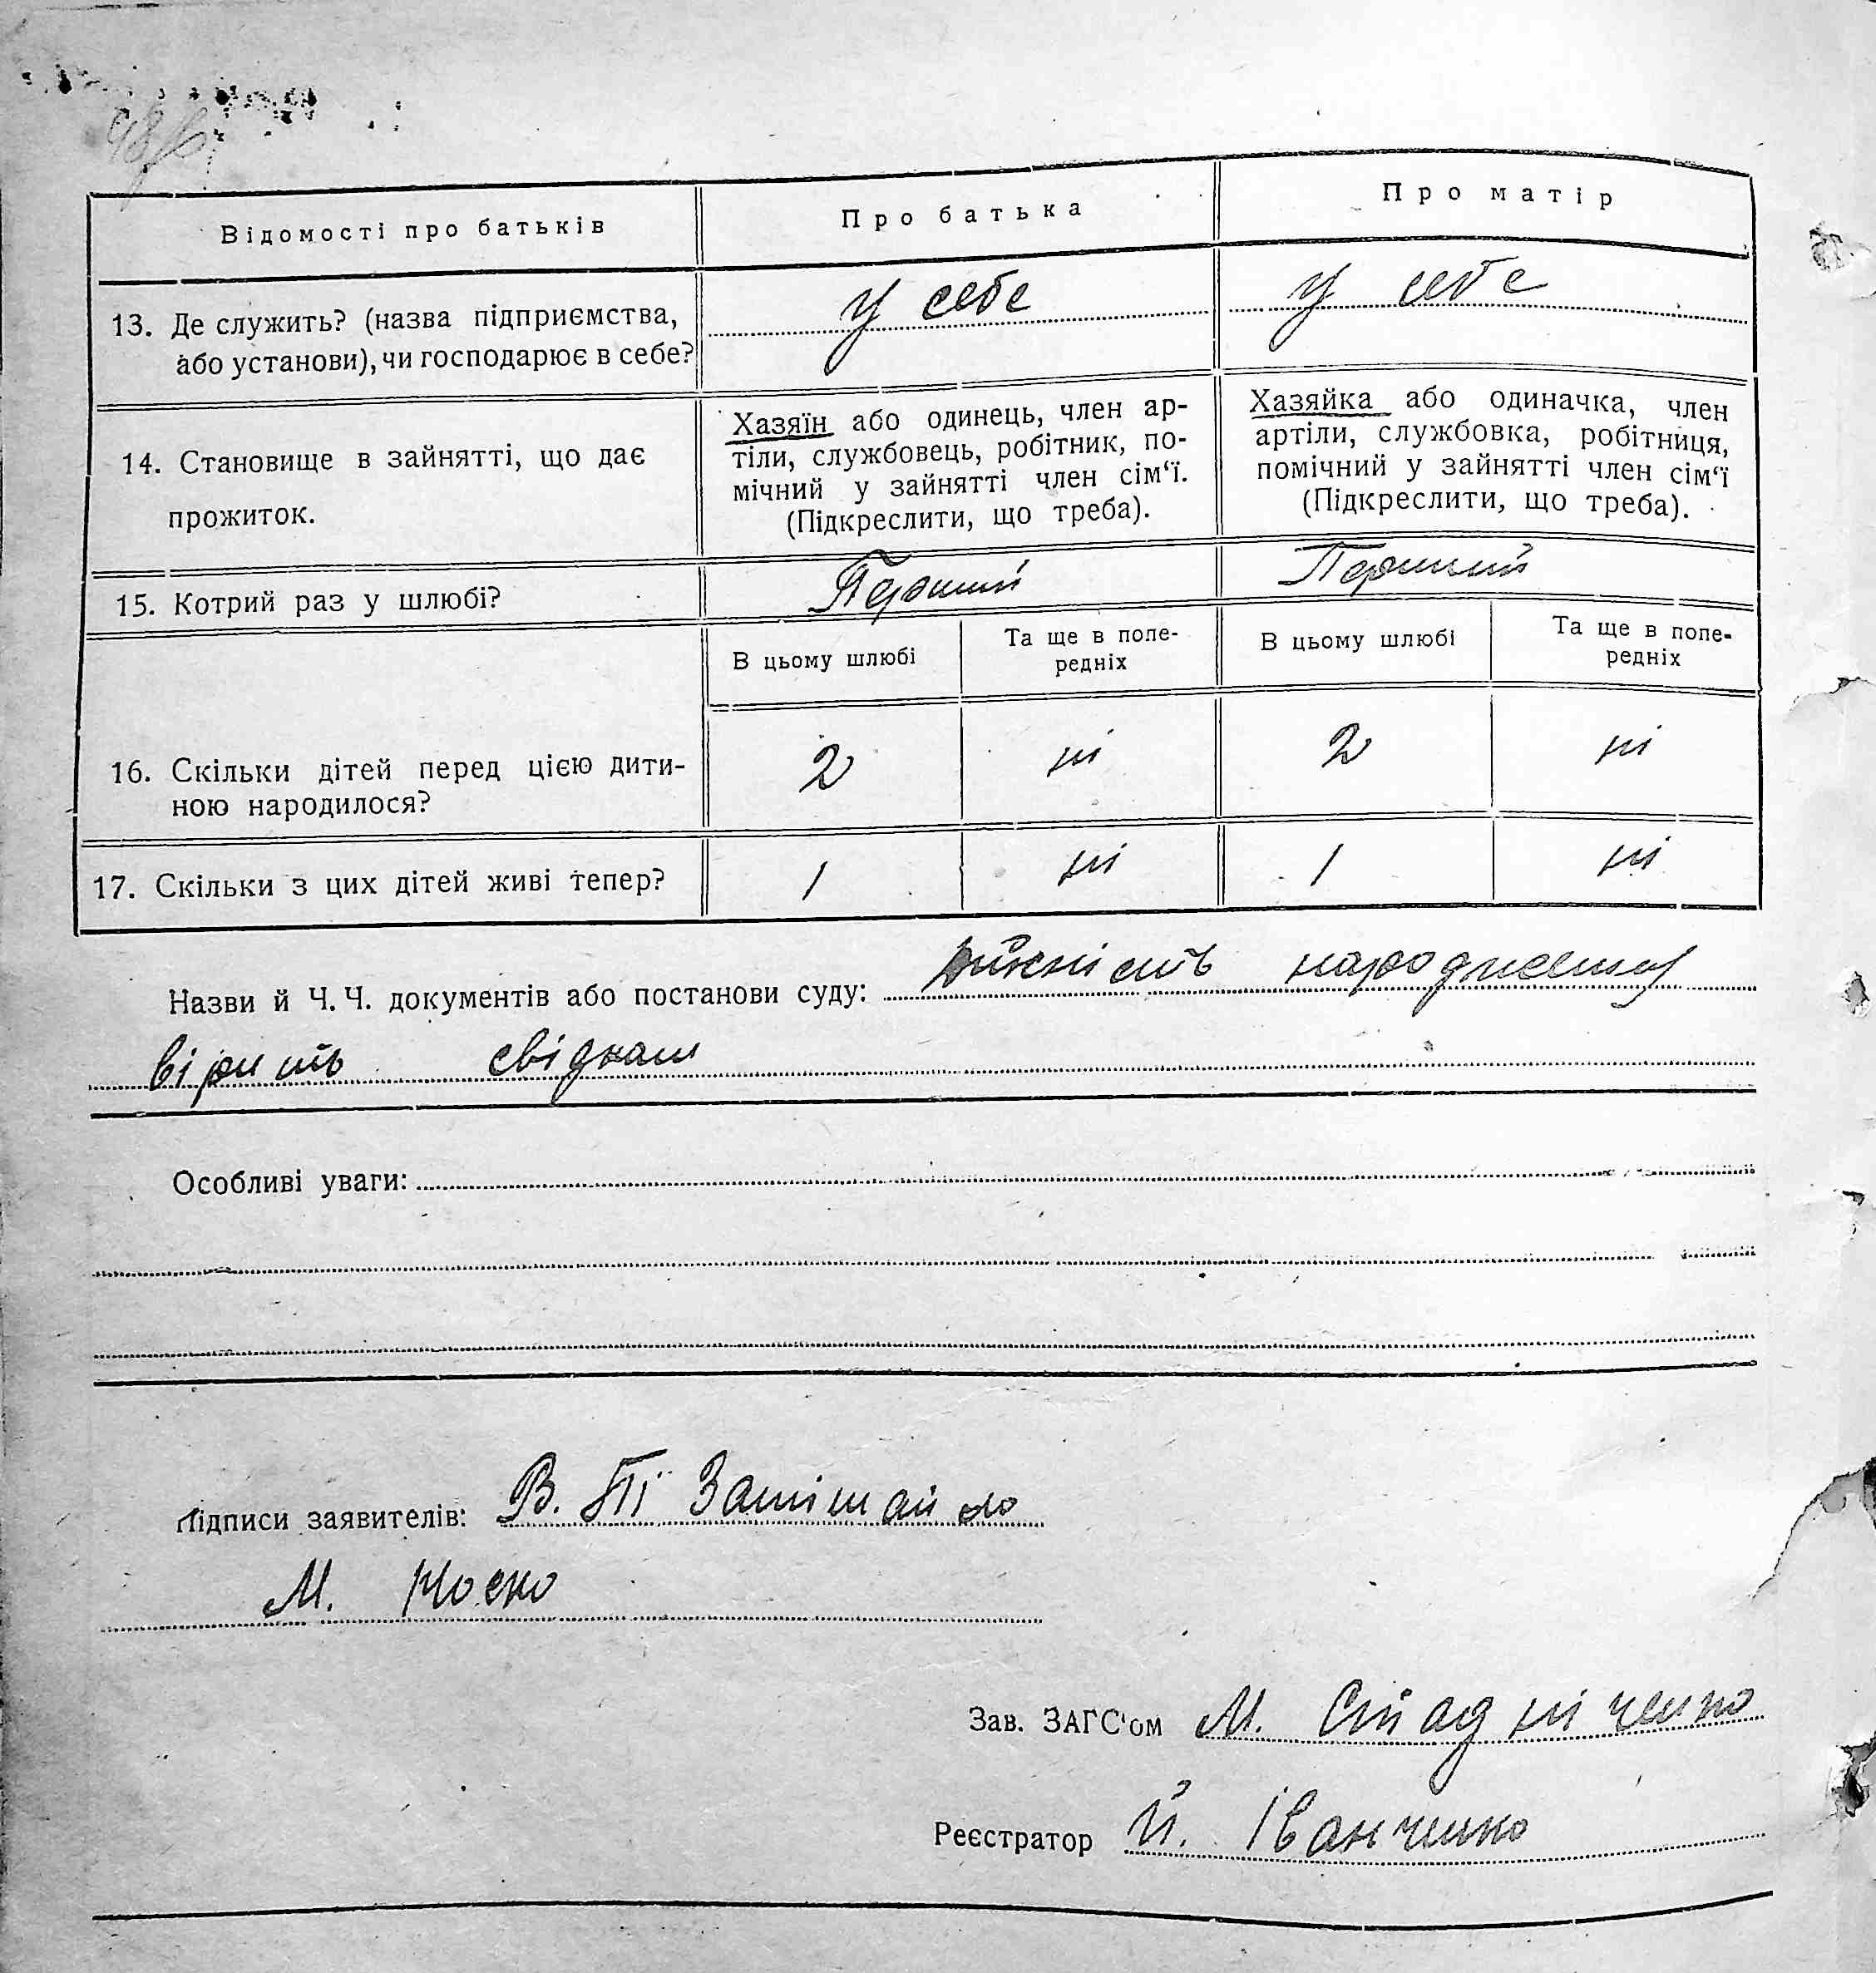 Відомості про батьків
Про батька
Про матір
13. Де служить? (назва підприємства,
або установи), чи господарює в себе?
у себе
у себе
14. Становище в зайнятті, що дає
прожиток.
Хазяїн або одинець, член ар-
тіли, службовець, робітник, по-
мічний у зайнятті член сім‘ї.
(Підкреслити, що треба).
Хазяйка або одиначка, член
артіли, службовка, робітниця,
помічний у зайнятті член сім‘ї
(Підкреслити, що треба).
15. Котрий раз у шлюбі?
Перший
Перший
В цьому шлюбі
Та ще в попе-
редніх
В цьому шлюбі
Та ще в попе-
редніх
16. Скільки дітей перед цією дити-
ною народилося?
2
ні
2
ні
17. Скільки з цих дітей живі тепер?
1
ні
1
ні
Назви й Ч. Ч. документів або постанови суду: народження
вірить свідкам
Особливі уваги:
Підписи заявителів: В.
М. Носко
Зав. ЗАГС‘ом М. Спадніченко
Реєстратор Й. Іванченко